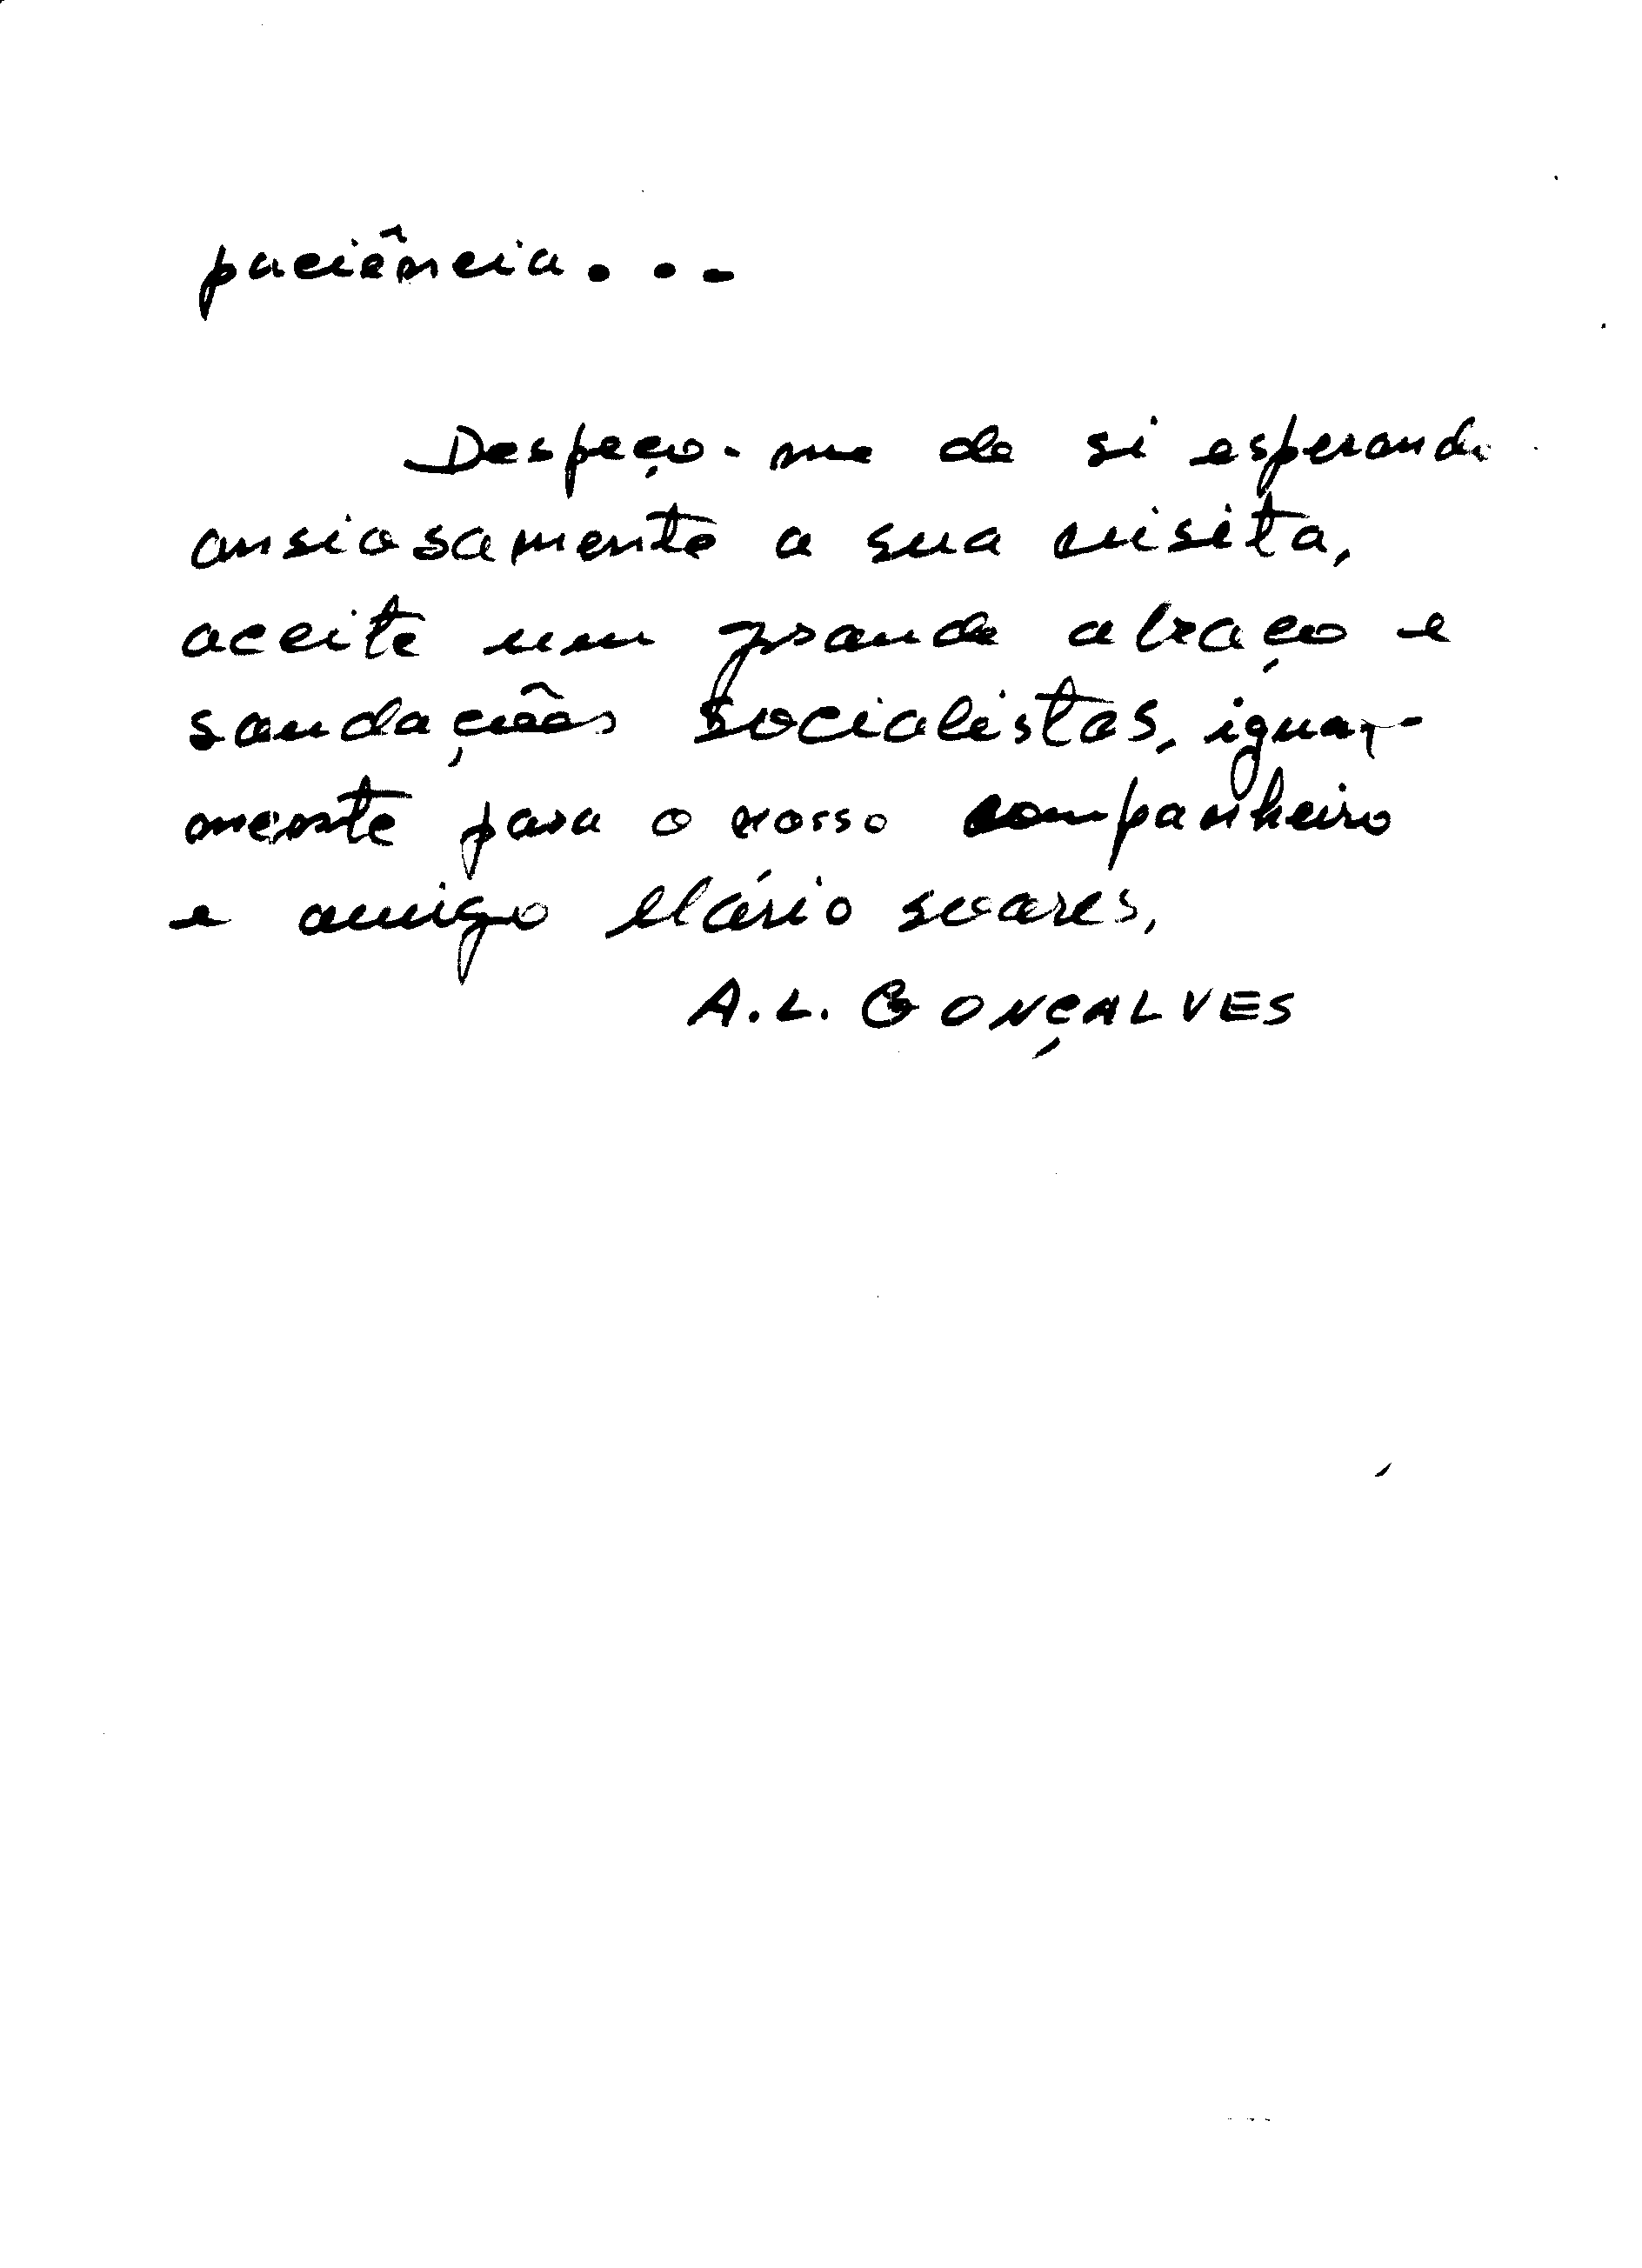 paciência...
Despeço-me de si esperando
ansiosamente a sua visita,
aceite um grande abraço e
saudações socialistas, igual-
mente para o nosso companheiro
e amigo Mário Soares,
A.L. GONÇALVES